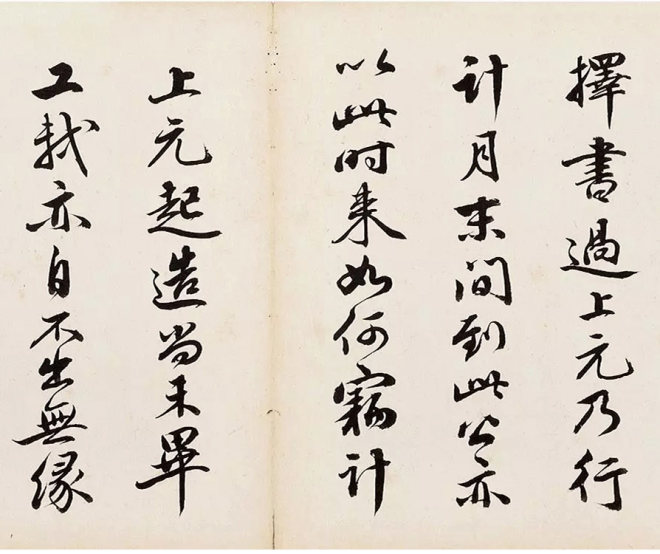 擇書過上元乃行
計月末間到此公亦
以此时来如何竊計
上元起造尚未畢
工軾亦自不出無緣